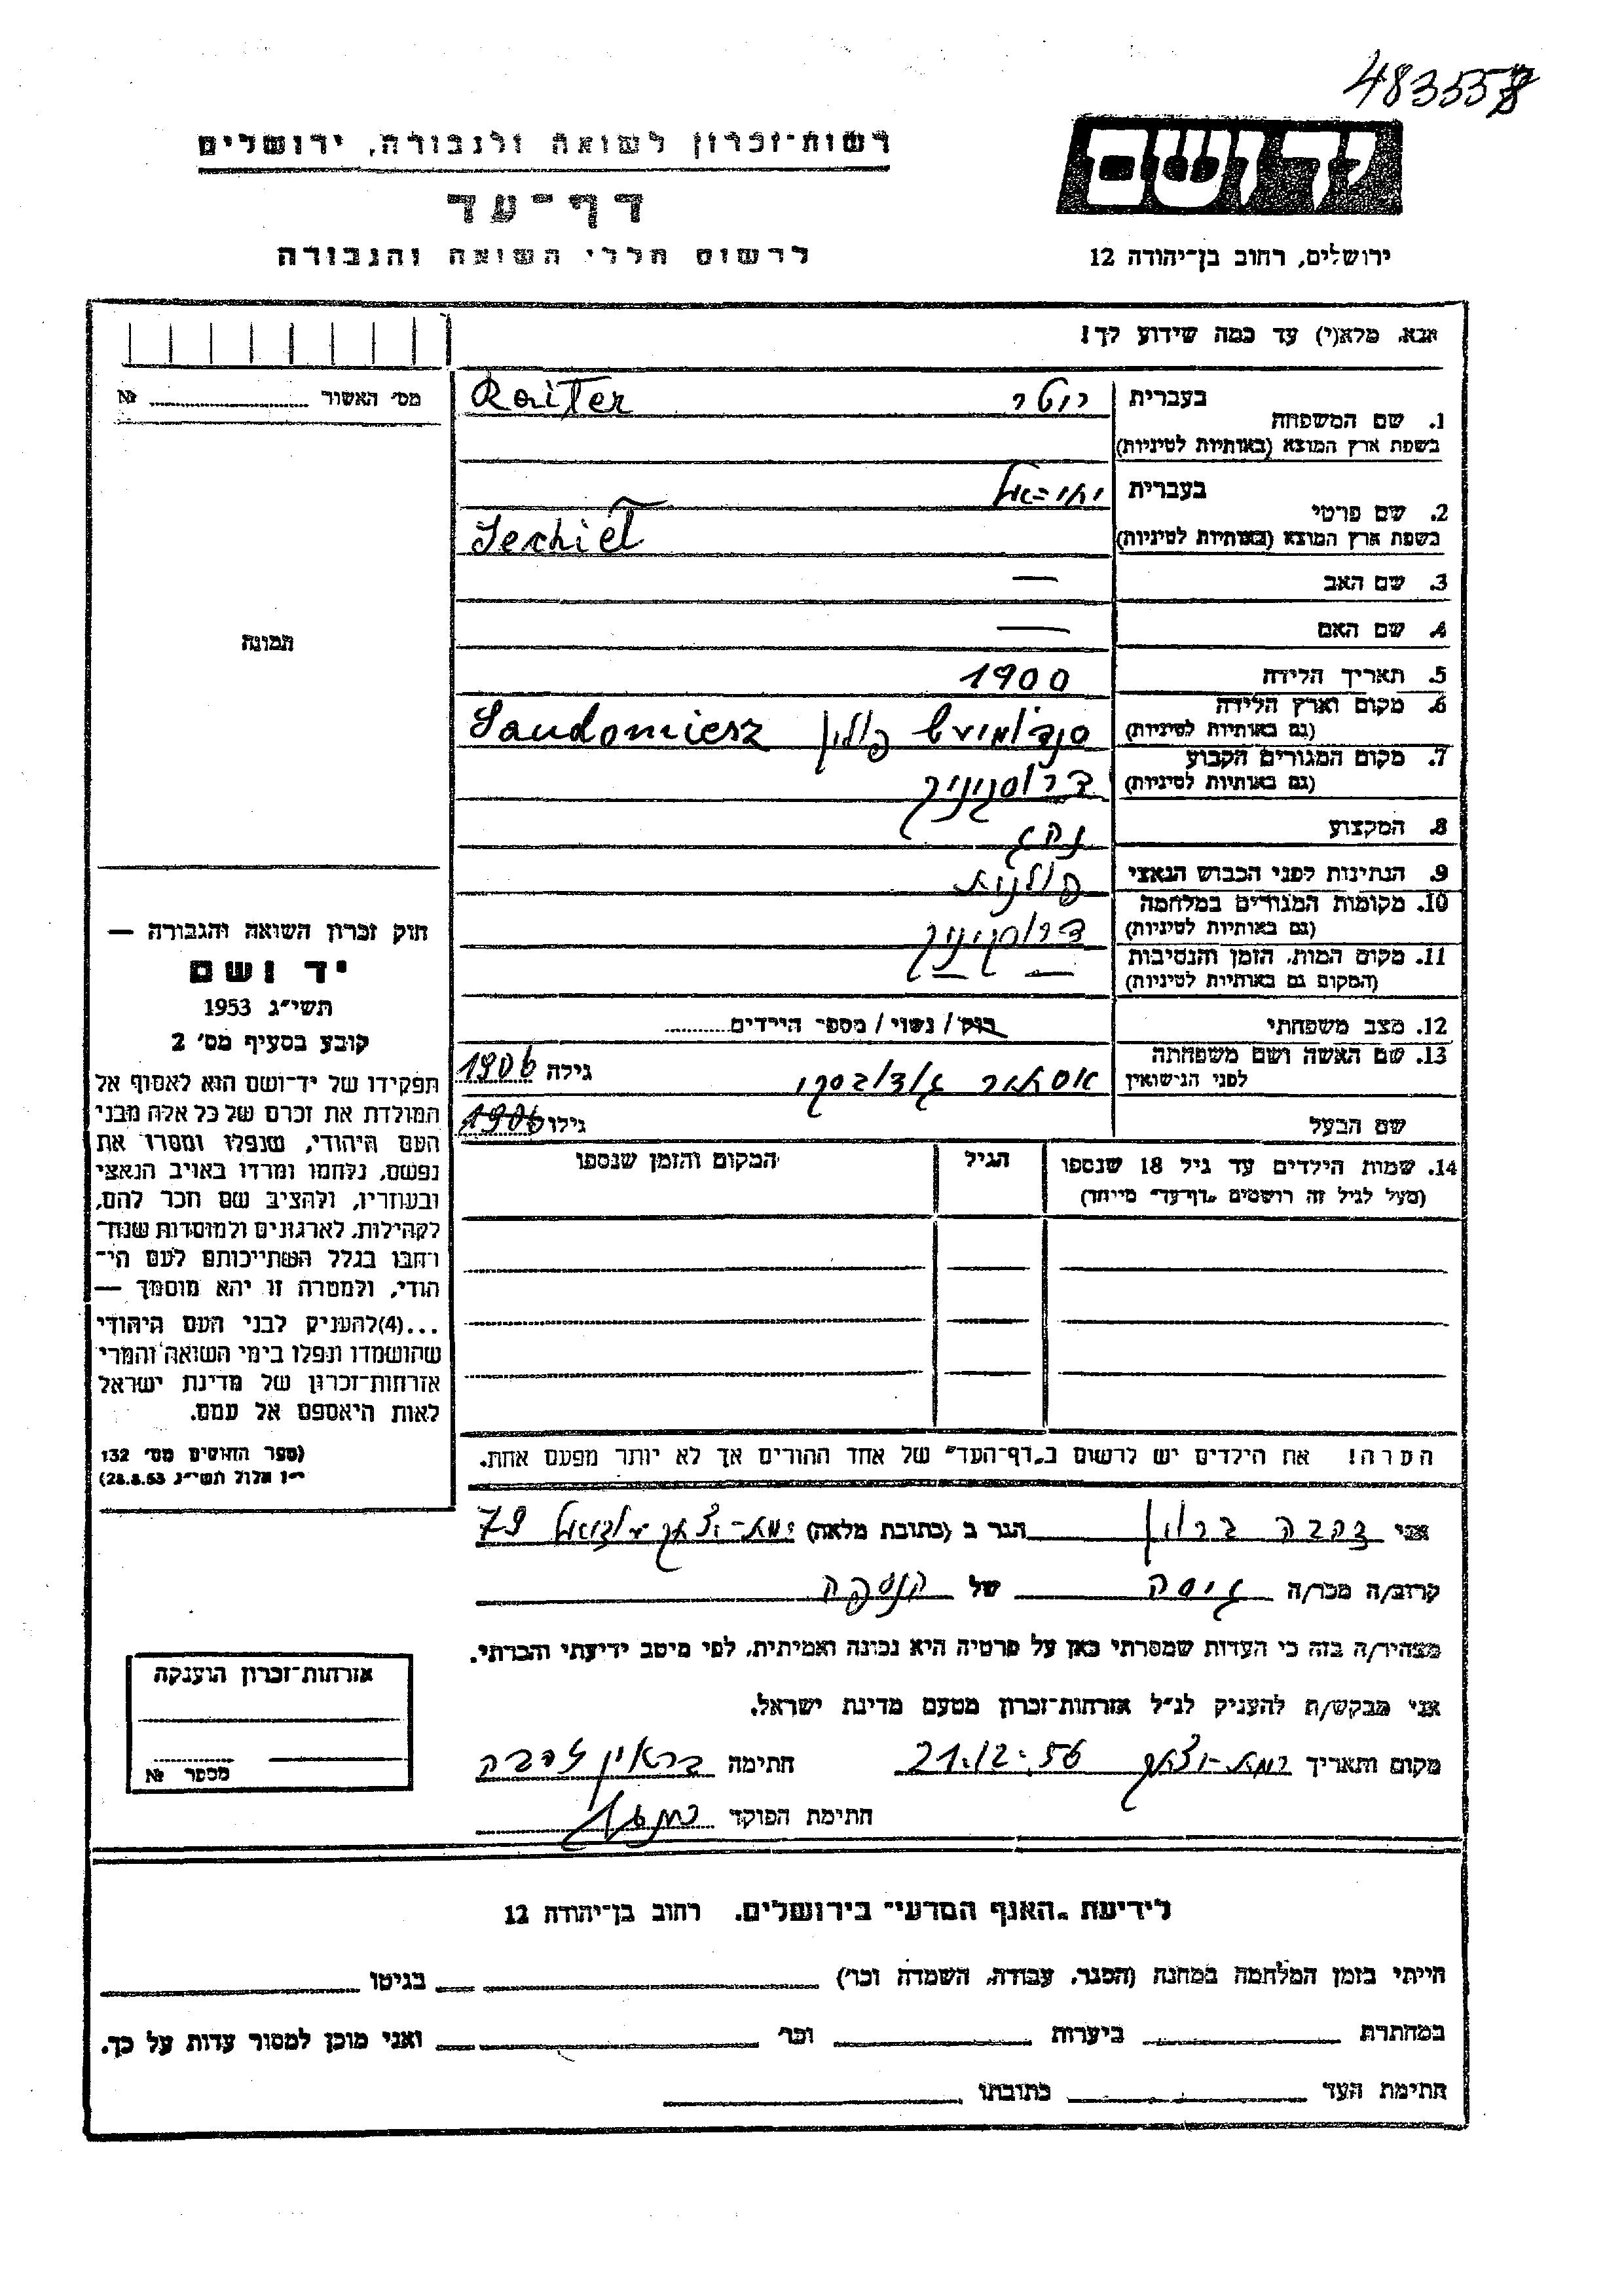 483558
רשות־זכרון לשואה ולגבורה, ירושלים
יד ושם
דף־עד
לרשום חללי השואה והגבורה
ירושלים, רחוב בן־יהודה 12
אנא, מלא(י) עד כמה שידוע לך!
מס׳ האשור № 
1. שם המשפחה
בעברית
Raiter
בשפת ארץ המוצא (באותיות לטיניות)
2. שם פרטי
בעברית
בשפת ארץ המוצא (באותיות לטיניות) Jechiel
3. שם האב —
4. שם האם —
תמונה
5. תאריך הלידה 1900
6. מקום וארץ הלידה
(גם באותיות לטיניות) פולין Sandomierz
7. מקום המגורים הקבוע
(גם באותיות לטיניות)
8. המקצוע
9. הנתינות לפני הכבוש הנאצי פולנית
10. מקומות המגורים במלחמה
(גם באותיות לטיניות)
11. מקום המות, הזמן והנסיבות — —
(המקום גם באותיות לטיניות)
12. מצב משפחתי רוק/נשוי/מספר הילדים
13. שם האשה ושם משפחתה
לפני הנישואין אסתר גילה 1906
שם הבעל גילו 1906
14. שמות הילדים עד גיל 18 שנספו
(מעל לגיל זה רושמים „דף־עד״ מיוחד)
הגיל
המקום והזמן שנספו
הערה! את הילדים יש לרשום ב„דף־העד״ של אחד ההורים אך לא יותר מפעם אחת.
חוק זכרון השואה והגבורה —
יד ושם
תשי״ג 1953
קובע בסעיף מס׳ 2
תפקידו של יד־ושם הוא לאסוף אל
המולדת את זכרם של כל אלה מבני
העם היהודי, שנפלו ומסרו את
נפשם, נלחמו ומרדו באויב הנאצי
ובעוזריו, ולהציב שם וזכר להם,
לקהילות, לארגונים ולמוסדות שנח־
רבו בגלל השתייכותם לעם הי־
הודי, ולמטרה זו יהא מוסמך —
...(4)להעניק לבני העם היהודי
שהושמדו ונפלו בימי השואה והמרי
אזרחות־זכרון של מדינת ישראל
לאות היאספם אל עמם.
(ספר החוקים מס׳ 132
י״ז אלול תשי״ג 28.8.53)
אני זהבה ברוין הגר ב (כתובת מלאה) רמת־יצחק 79
קרוב/ה מכר/ה גיסה של הנספה
מצהיר/ה בזה כי העדות שמסרתי כאן על פרטיה היא נכונה ואמיתית, לפי מיטב ידיעתי והכרתי.
אני מבקש/ת להעניק לנ״ל אזרחות־זכרון מטעם מדינת ישראל.
מקום ותאריך רמת־יצחק 21.12.56 חתימה זהבה
חתימת הפוקד
אזרחות־זכרון הוענקה
מספר №
לידיעת „האגף המדעי״ בירושלים, רחוב בן־יהודה 12
הייתי בזמן המלחמה במחנה (הסגר, עבודה, השמדה וכו׳) בגיטו
במחתרת ביערות וכו׳ ואני מוכן למסור עדות על כך.
חתימת העד כתובתו